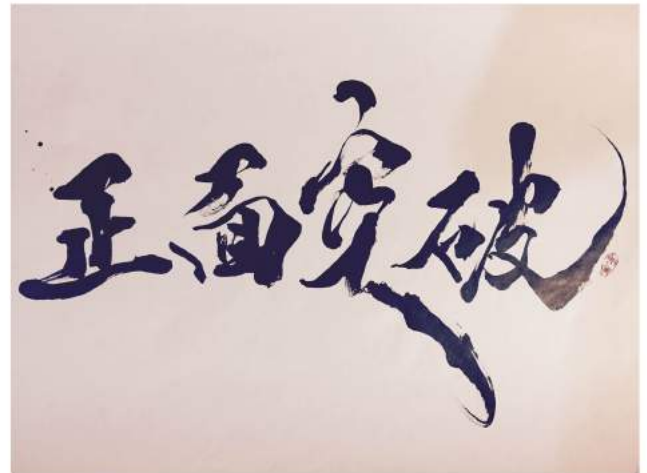 正面突破